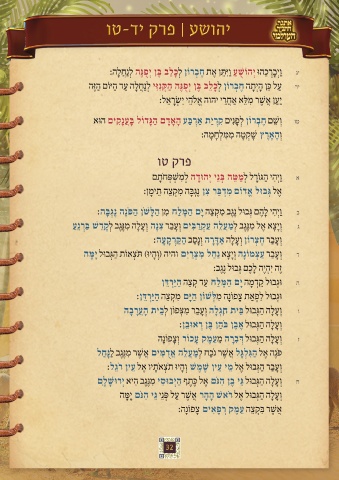 יהושע | פרק יד-טו
יג וַיְבָרְכֵהוּ יְהוֹשֻׁעַ וַיִּתֵּן אֶת חֶבְרוֹן לְכָלֵב בֶּן יְפֻנֶּה לְנַחֲלָה:
יד עַל כֵּן הָיְתָה חֶבְרוֹן לְכָלֵב בֶּן יְפֻנֶּה הַקְּנִזִּי לְנַחֲלָה עַד הַיּוֹם הַזֶּה
יַעַן אֲשֶׁר מִלֵּא אַחֲרֵי יהוה אֱלֹהֵי יִשְׂרָאֵל:
טו וְשֵׁם חֶבְרוֹן לְפָנִים קִרְיַת אַרְבַּע הָאָדָם הַגָּדוֹל בָּעֲנָקִים הוּא
וְהָאָרֶץ שָׁקְטָה מִמִּלְחָמָה:
פרק טו
א וַיְהִי הַגּוֹרָל לְמַטֵּה בְּנֵי יְהוּדָה לְמִשְׁפְּחֹתָם
אֶל גְּבוּל אֱדוֹם מִדְבַּר צִן נֶגְבָּה מִקְצֵה תֵימָן:
ב וַיְהִי לָהֶם גְּבוּל נֶגֶב מִקְצֵה יָם הַמֶּלַח מִן הַלָּשֹׁן הַפֹּנֶה נֶגְבָּה:
ג וְיָצָא אֶל מִנֶּגֶב לְמַעֲלֵה עַקְרַבִּים וְעָבַר צִנָה וְעָלָה מִנֶּגֶב לְקָדֵשׁ בַּרְנֵעַ
וְעָבַר חֶצְרוֹן וְעָלָה אַדָּרָה וְנָסַב הַקַּרְקָעָה:
ד וְעָבַר עַצְמוֹנָה וְיָצָא נַחַל מִצְרַיִם והיה (וְהָיוּ) תֹּצְאוֹת הַגְּבוּל יָמָּה
זֶה יִהְיֶה לָכֶם גְּבוּל נֶגֶב:
ה וּגְבוּל קֵדְמָה יָם הַמֶּלַח עַד קְצֵה הַיַּרְדֵּן
וּגְבוּל לִפְאַת צָפוֹנָה מִלְּשׁוֹן הַיָּם מִקְצֵה הַיַּרְדֵּן:
ו וְעָלָה הַגְּבוּל בֵּית חָגְלָה וְעָבַר מִצְּפוֹן לְבֵית הָעֲרָבָה
וְעָלָה הַגְּבוּל אֶבֶן בֹּהַן בֶּן רְאוּבֵן:
ז וְעָלָה הַגְּבוּל דְּבִרָה מֵעֵמֶק עָכוֹר וְצָפוֹנָה
פֹּנֶה אֶל הַגִּלְגָּל אֲשֶׁר נֹכַח לְמַעֲלֵה אֲדֻמִּים אֲשֶׁר מִנֶּגֶב לַנָּחַל
וְעָבַר הַגְּבוּל אֶל מֵי עֵין שֶׁמֶשׁ וְהָיוּ תֹצְאֹתָיו אֶל עֵין רֹגֵל:
ח וְעָלָה הַגְּבוּל גֵּי בֶן הִנֹּם אֶל כֶּתֶף הַיְבוּסִי מִנֶּגֶב הִיא יְרוּשָׁלִָם
וְעָלָה הַגְּבוּל אֶל רֹאשׁ הָהָר אֲשֶׁר עַל פְּנֵי גֵי הִנֹּם יָמָּה
אֲשֶׁר בִּקְצֵה עֵמֶק רְפָאִים צָפוֹנָה:
32